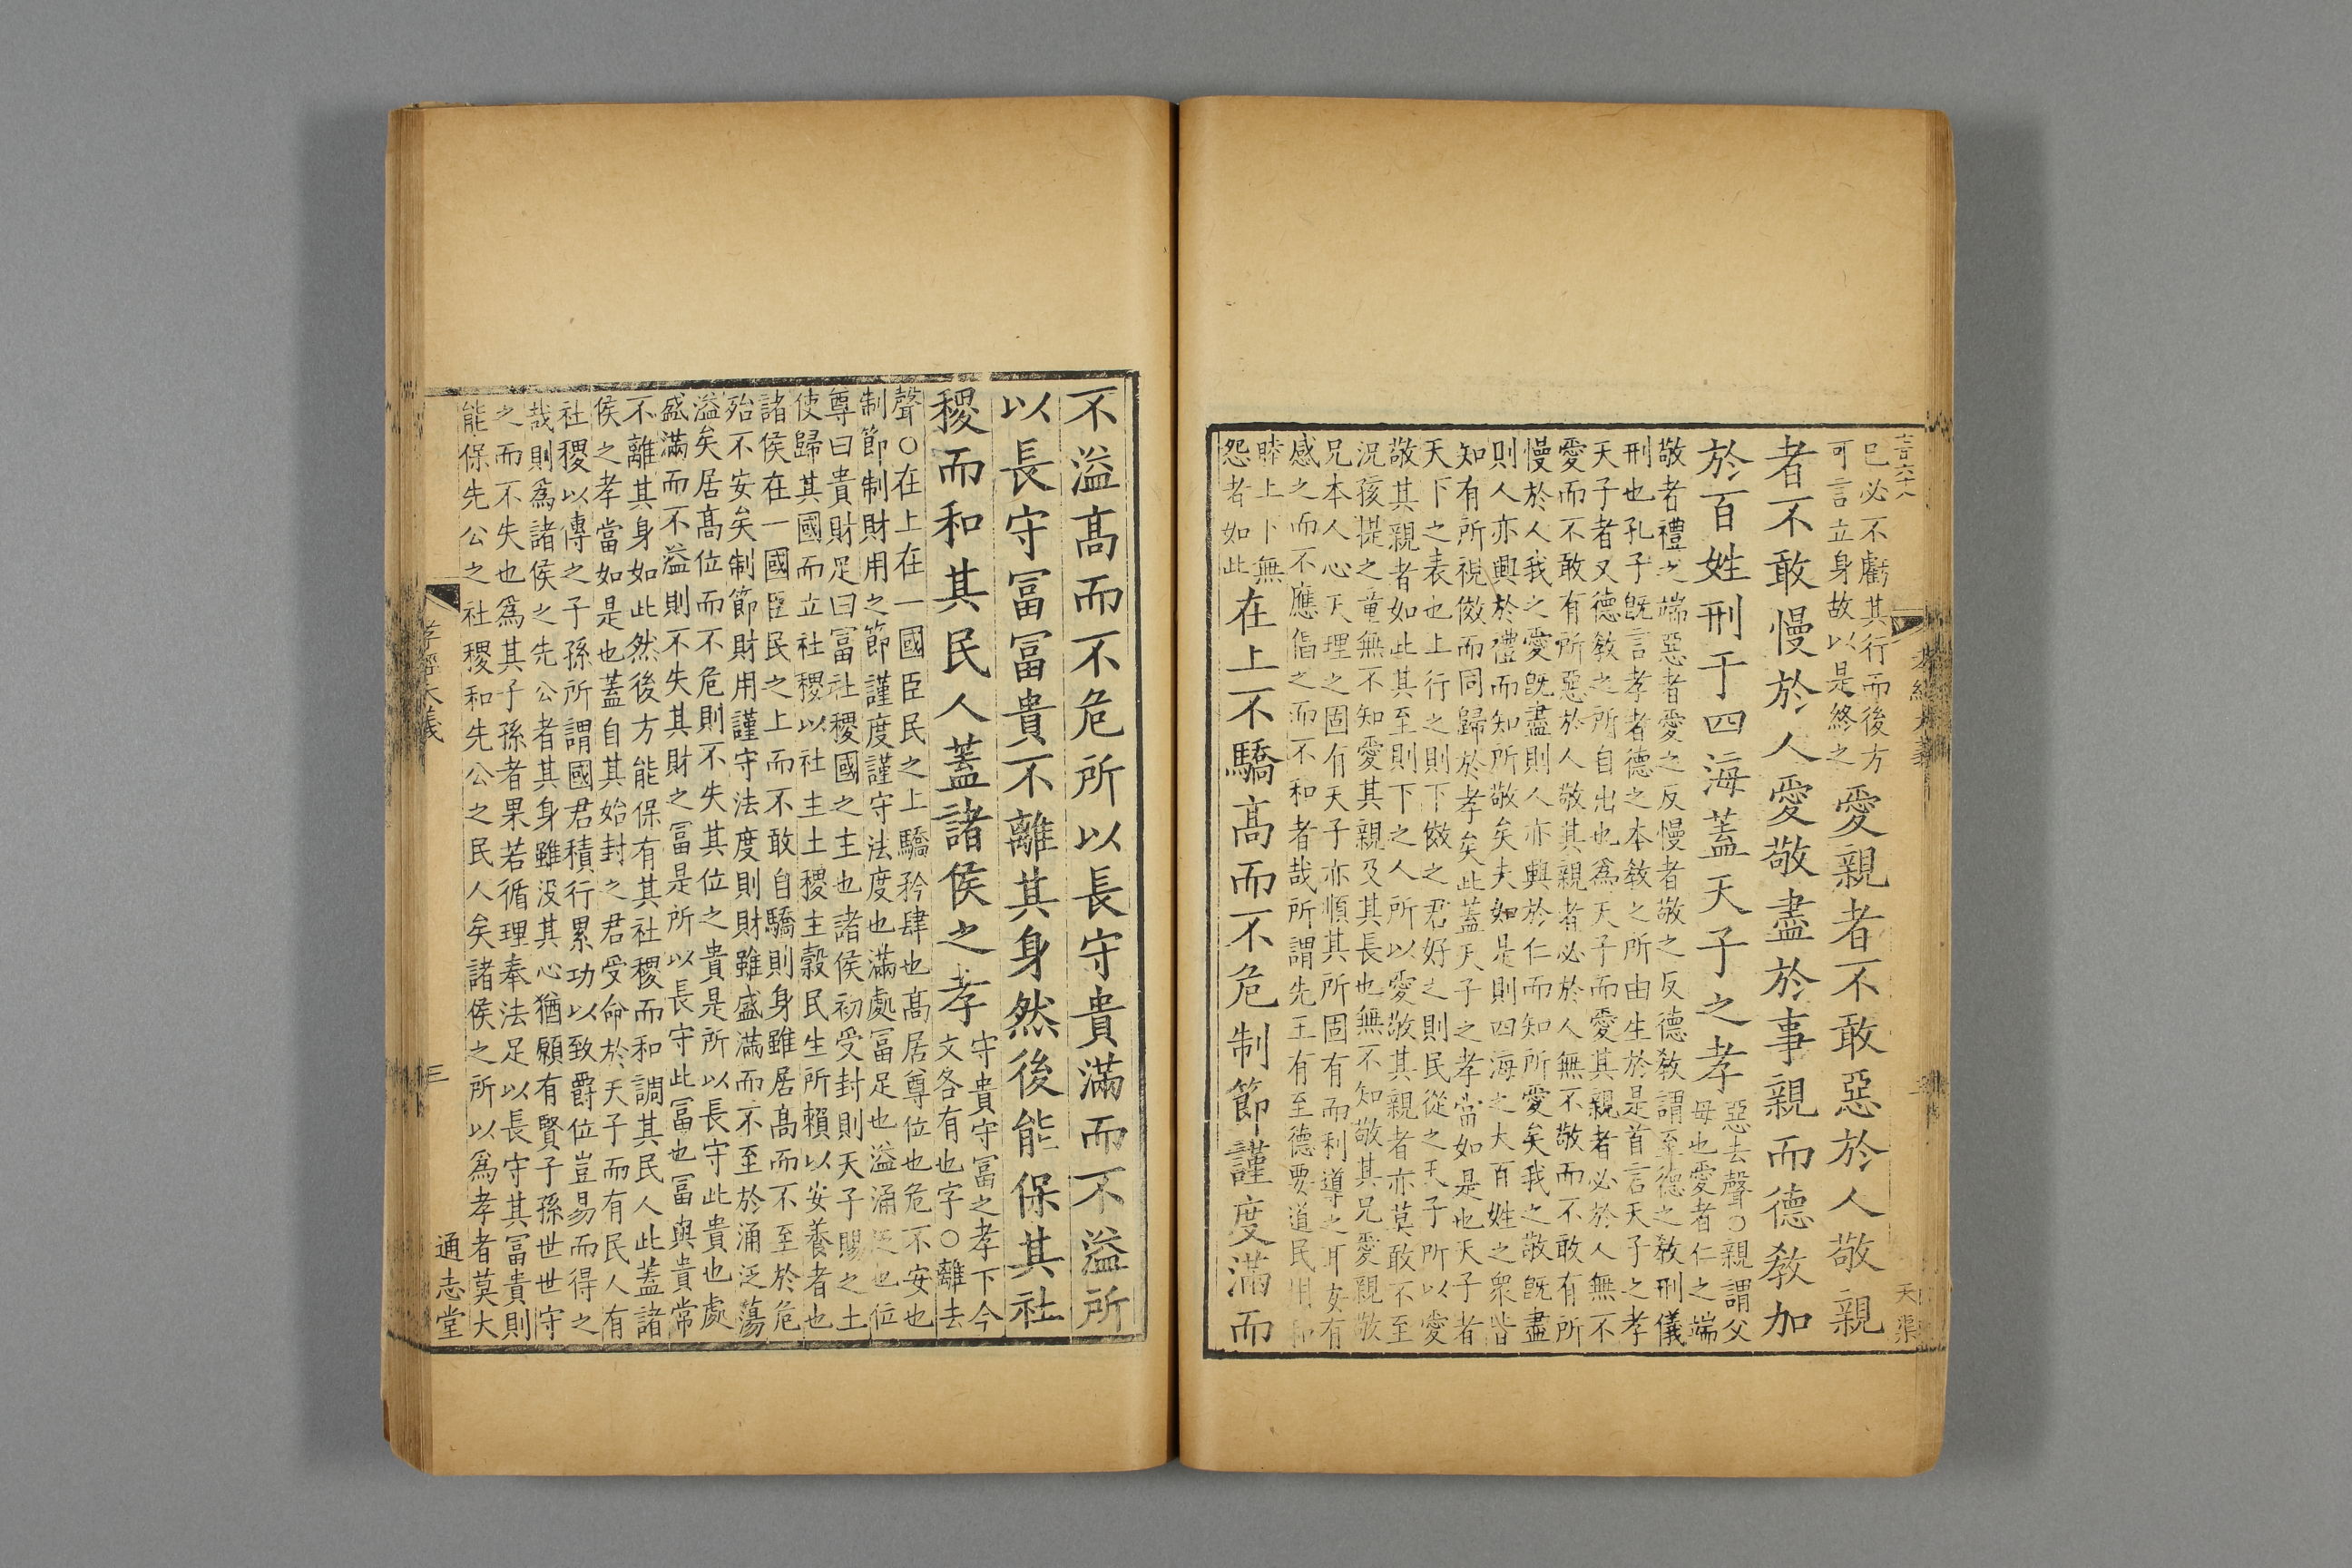 言六十八
巳必不虧其行而後方
可言立身故以是終之
愛親者不敢惡於人敬親
者不敢慢於人愛敬盡於事親而德敎加
於百姓刑于四海蓋天子之孝
惡去聲○親謂父
母也愛者仁之端
敬者禮之端惡者愛之反慢者敬之反德敎謂至德之敎刑儀
刑也孔子旣言孝者德之本敎之所由生於是首言天子之孝
天子者又德敎之所自出也爲天子而愛其親者必於人無不
愛而不敢有所惡於人敬其親者必於人無不敬而不敢有所
慢於人我之愛旣盡則人亦興於仁而知所愛矣我之敬旣盡
則人亦興於禮而知所敬矣夫如是則四海之大百姓之衆皆
知有所視傚而同歸於孝矣此蓋天子之孝當如是也天子者
天下之表也上行之則下傚之君好之則民從之天子所以愛
敬其親者如此其至則下之人所以愛敬其親者亦莫敢不至
況孩提之童無不知愛其親及其長也無不知敬其兄愛親敬
兄本人心天理之固有天子亦順其所固有而利導之耳安有
感之而不應倡之而不和者哉所謂先王有至德要道民用和
睦上下無
怨者如此
在上不驕高而不危制節謹度滿而
天渠
不溢高而不危所以長守貴滿而不溢所
以長守冨冨貴不離其身然後能保其社
稷而和其民人蓋諸侯之孝
守貴守冨之孝下今
文各有也字○離去
聲○在上在一國臣民之上驕矜肆也高居尊位也危不安也
制節制財用之節謹度謹守法度也滿處冨足也溢涌泛也位
尊曰貴財足曰冨社稷國之主也諸侯初受封則天子賜之土
使歸其國而立社稷以社主土稷主穀民生所賴以安養者也
諸侯在一國臣民之上而不敢自驕則身雖居高而不至於危
殆不安矣制節財用謹守法度則財雖盛滿而不至於涌泛蕩
溢矣居高位而不危則不失其位之貴是所以長守此貴也處
盛滿而不溢則不失其財之冨是所以長守此冨也冨與貴常
不離其身如此然後方能保有其社稷而和調其民人此蓋諸
侯之孝當如是也蓋自其始封之君受命於天子而有民人有
社稷以傳之子孫所謂國君積行累功以致爵位豈易而得之
哉則爲諸侯之先公者其身雖没其心猶願有賢子孫世世守
之而不失也爲其子孫者果若循理奉法足以長守其冨貴則
能保先公之社稷和先公之民人矣諸侯之所以爲孝者莫大
孝經大義
三
通志堂